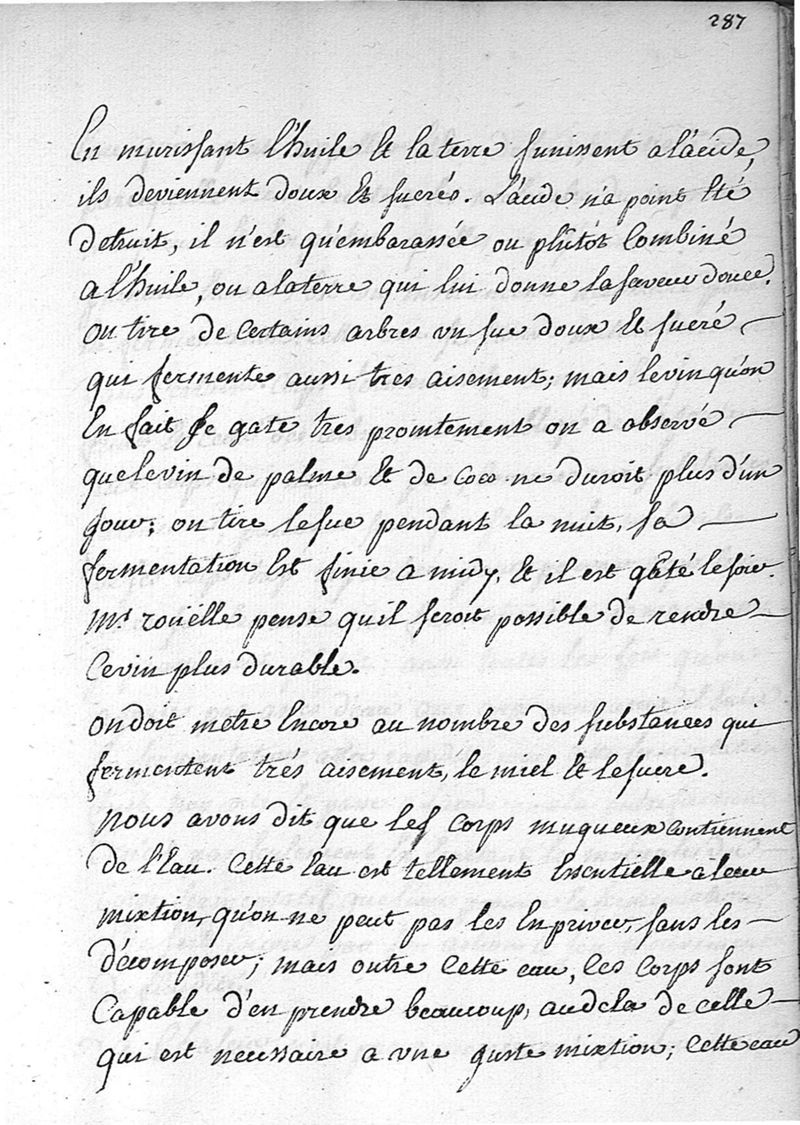 287
En murissant l'huile et la terre s'unissent a l'acide,
ils deviennent doux et sucrés. L'acide n'a point eté
detruit, il n'est qu'embarassée ou plûtôt combiné
a l'huile, ou a la terre qui lui donne la saveur douce.
on tire de certains arbres un suc doux et sucré
qui fermente aussi tres aisement; mais le vin qu'on
en fait se gate tres promtement on a observé
que le vin de palme et de coco ne duroit plus d'un
jour; on tire le suc pendant la nuit, sa
fermentation est finie a midy, et il est gâté le soir.
Mr. roüelle pense qu'il seroit possible de rendre
ce vin plus durable.
on doit metre encore au nombre des substances qui
fermentent trés aisement, le miel et le sucre.
Nous avons dit que les corps muqueux contiennent
de l'eau. Cette eau est tellement essentielle a leur
mixtion, qu'on ne peut pas les en priver, sans les
décomposer; mais outre cette eau, ces corps sont
capable d'en prendre beaucoup, au dela de celle
qui est necessaire a une juste mixtion; cette eau